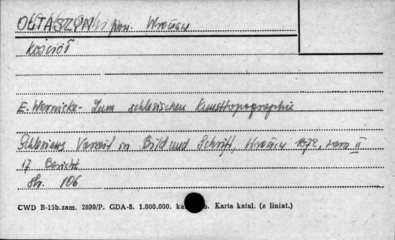 OŁTASZYN pow. Wrocław
Kościół
E. Wernicke - Zum schlesischen Kunsttopographie
Schlesiens Vorzeit in Bild und Schrift, Wrocław 1872, tom II
17 Bericht
str. 106
CWD B-15b.zam. 2899/P. GDA-8. 1.000.000. Karta katal. (z liniat.)